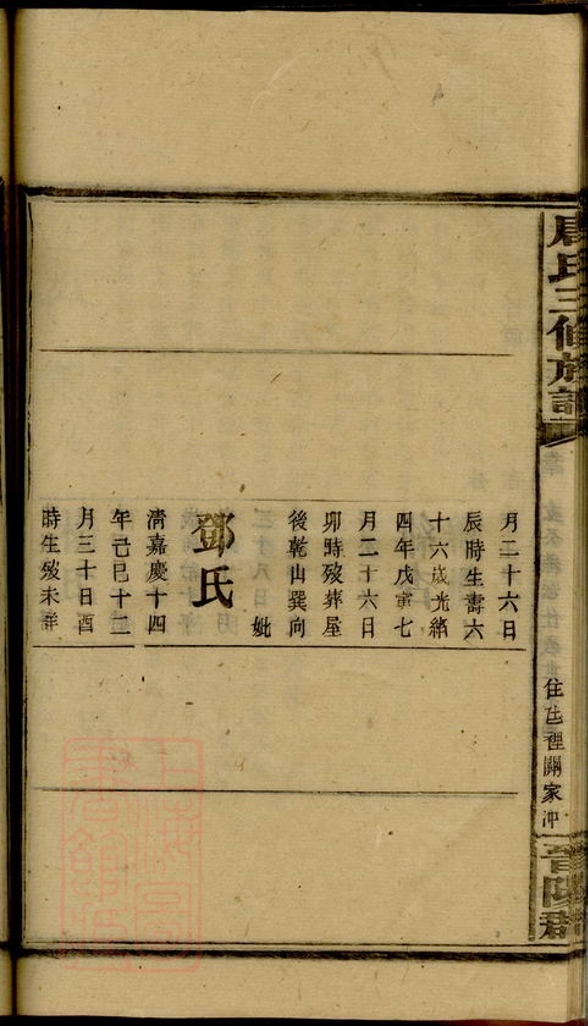 唐氏三修族譜
住庄裡關家冲
晉陽郡
月二十六日
辰時生壽六
十六歲光緒
四年戊寅七
月二十六日
卯時殁葬屋
後乾山巽向
妣
鄧氏
清嘉慶十四
年己巳十二
月三十日酉
時生殁未詳
上海圖書館藏